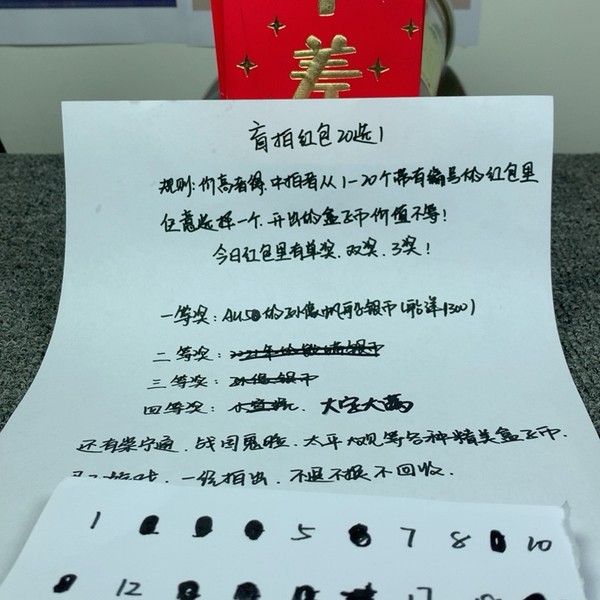 盲拍红包20选1
规则:价高者得.中拍者从1-20个带有编号的红包里
任意选择一个.开出的盒子币价值不等!
今日红包里有单奖.双奖.3奖!
一等奖:AU58的孙像帆船银币(船洋1300)
二等奖:
三等奖:孙像银币
四等奖: 大字大萬
还有崇宁通.战国鬼脸.太平大观等各种精美盒子币.
一经拍出.不退不换不回收.
1 5 7 8 10
12 17